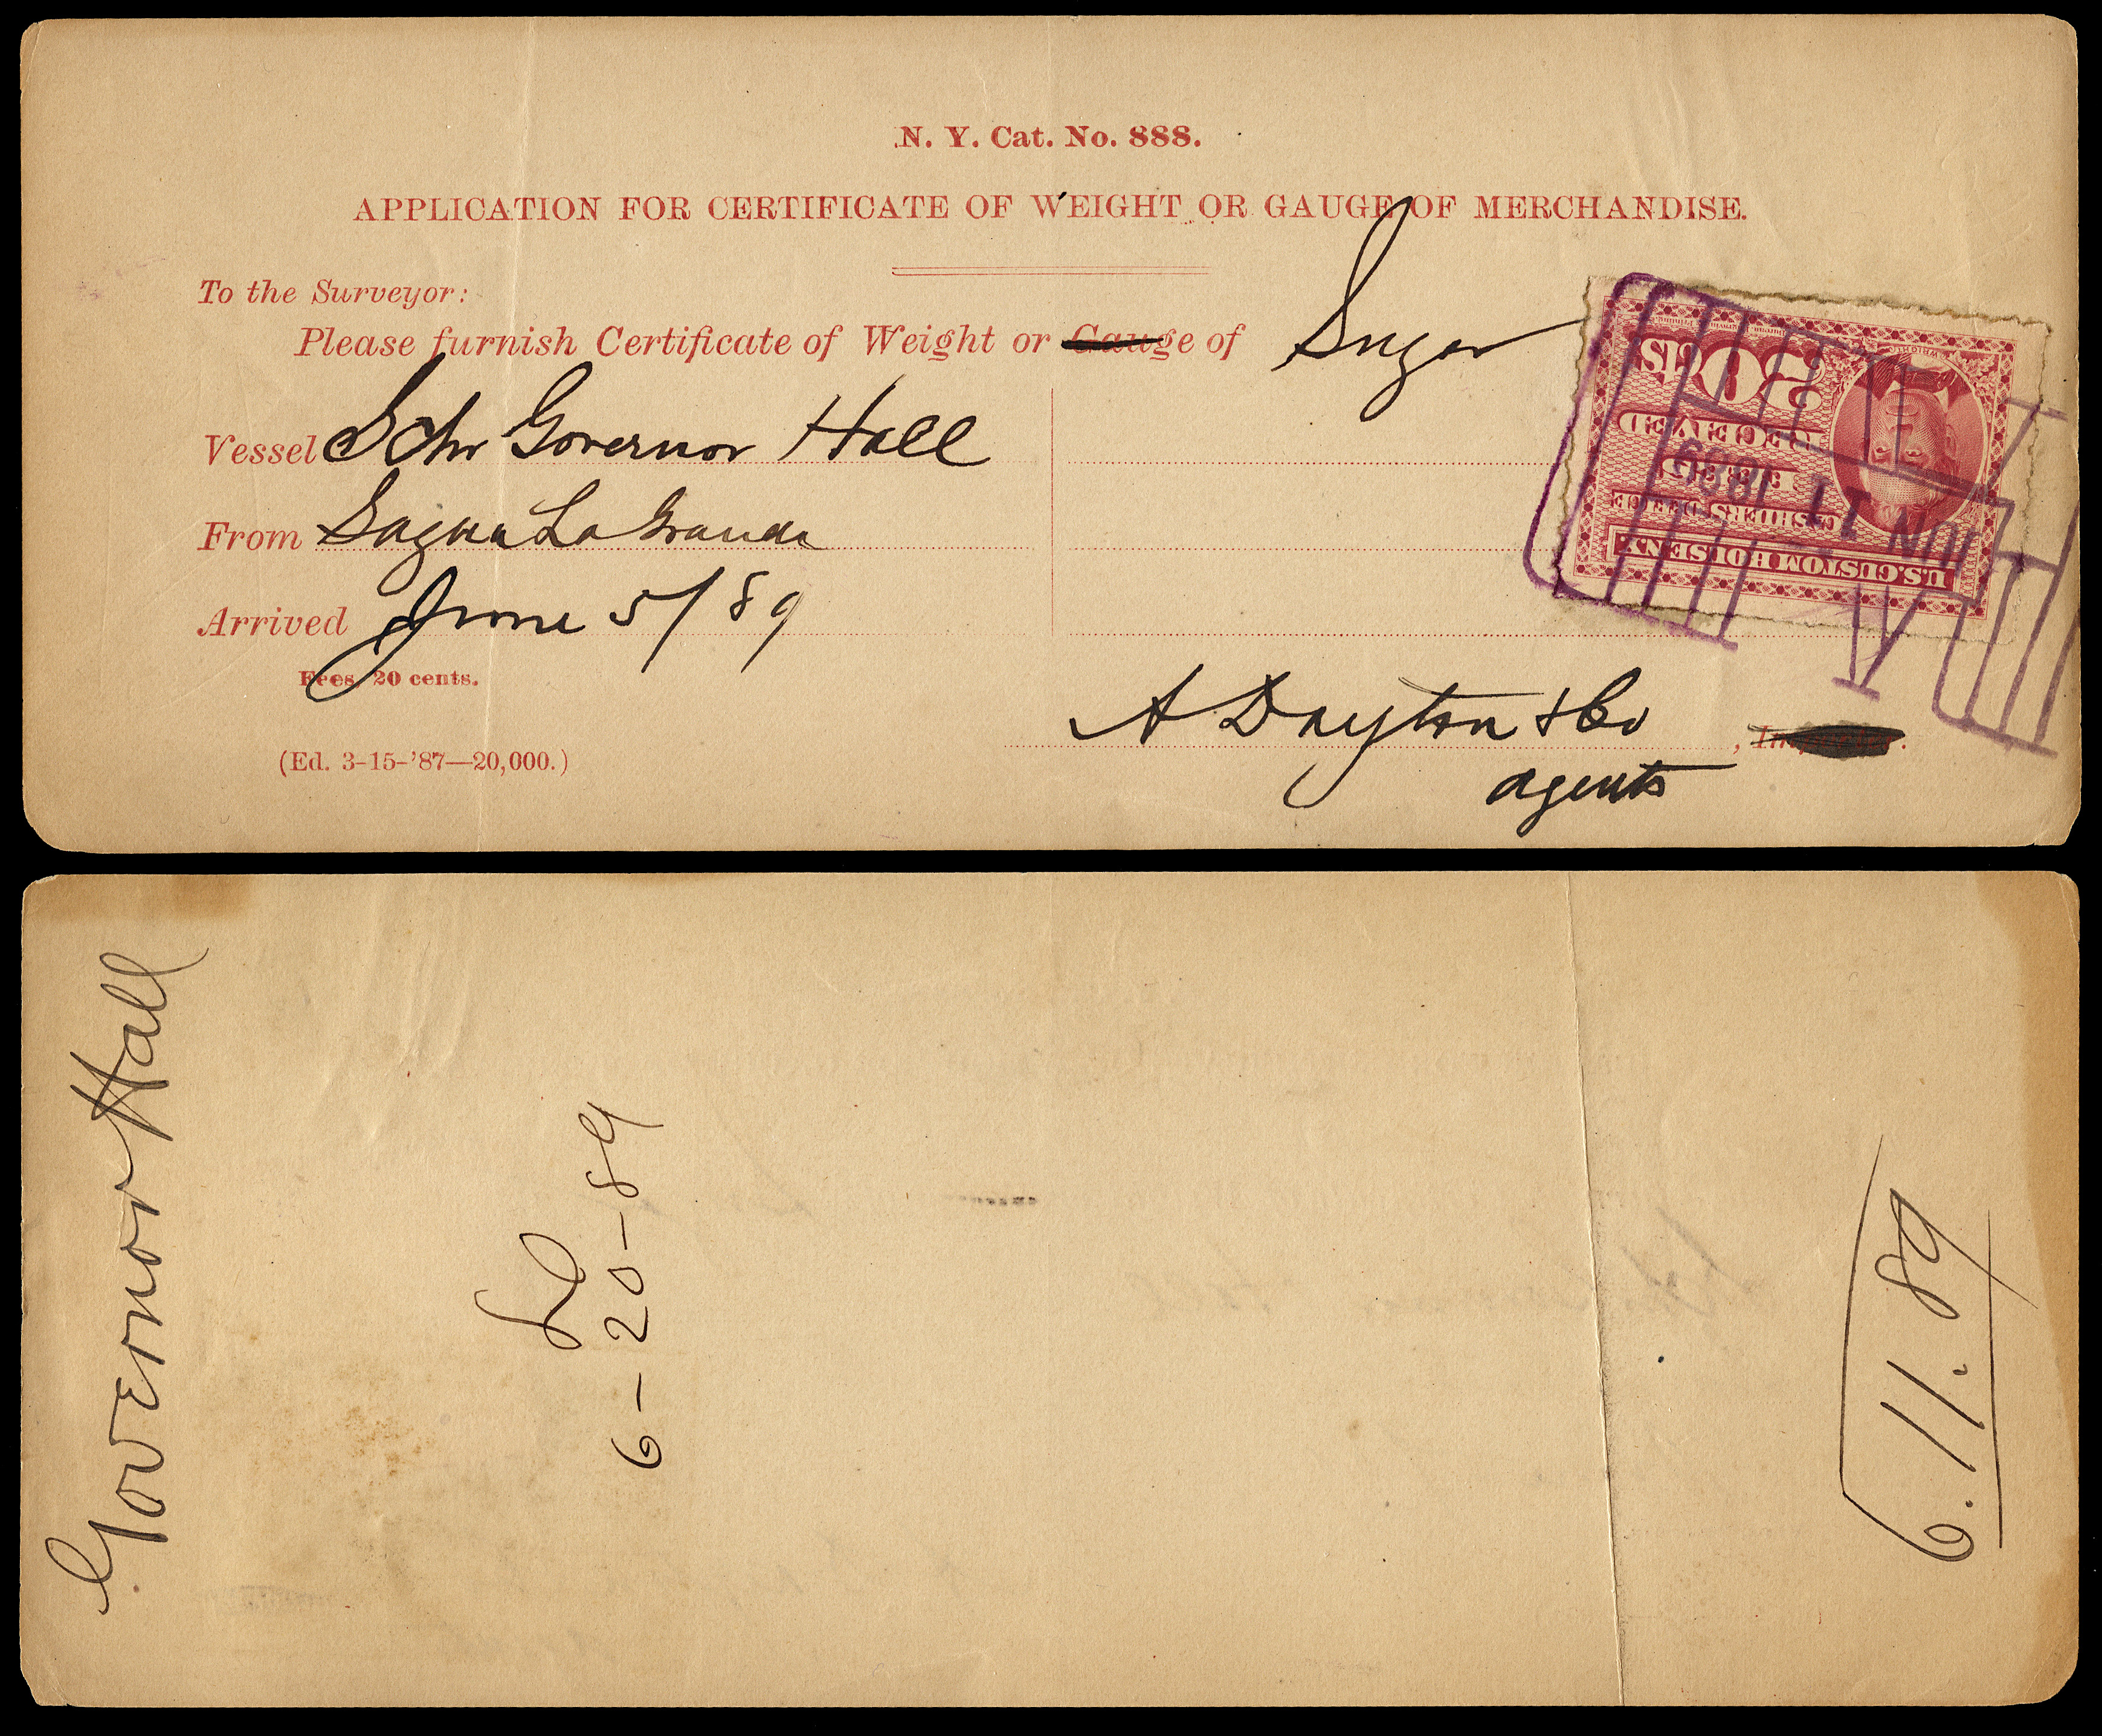 N. Y. Cat. No. 888.
APPLICATION FOR CERTIFICATE OF WEIGHT OR GAUGE OF MERCHANDISE.
To the Surveyor:
Please furnish Certificate of Weight or Gauge of Sugar
Vessel Schr Governor Hall
From Sagua La Grande
Arrived June 5/89
Fees, 20 cents.
(Ed. 3-15-'87—20,000.)
A Dayton & Co, Importer.
agents
U.S. CUSTOM HOUSE N.Y.
CASHIER'S OFFICE
FEES
RECEIVED
20 CTS
JUN 11 1889
Governor Hall
6-20-89
6.11.89